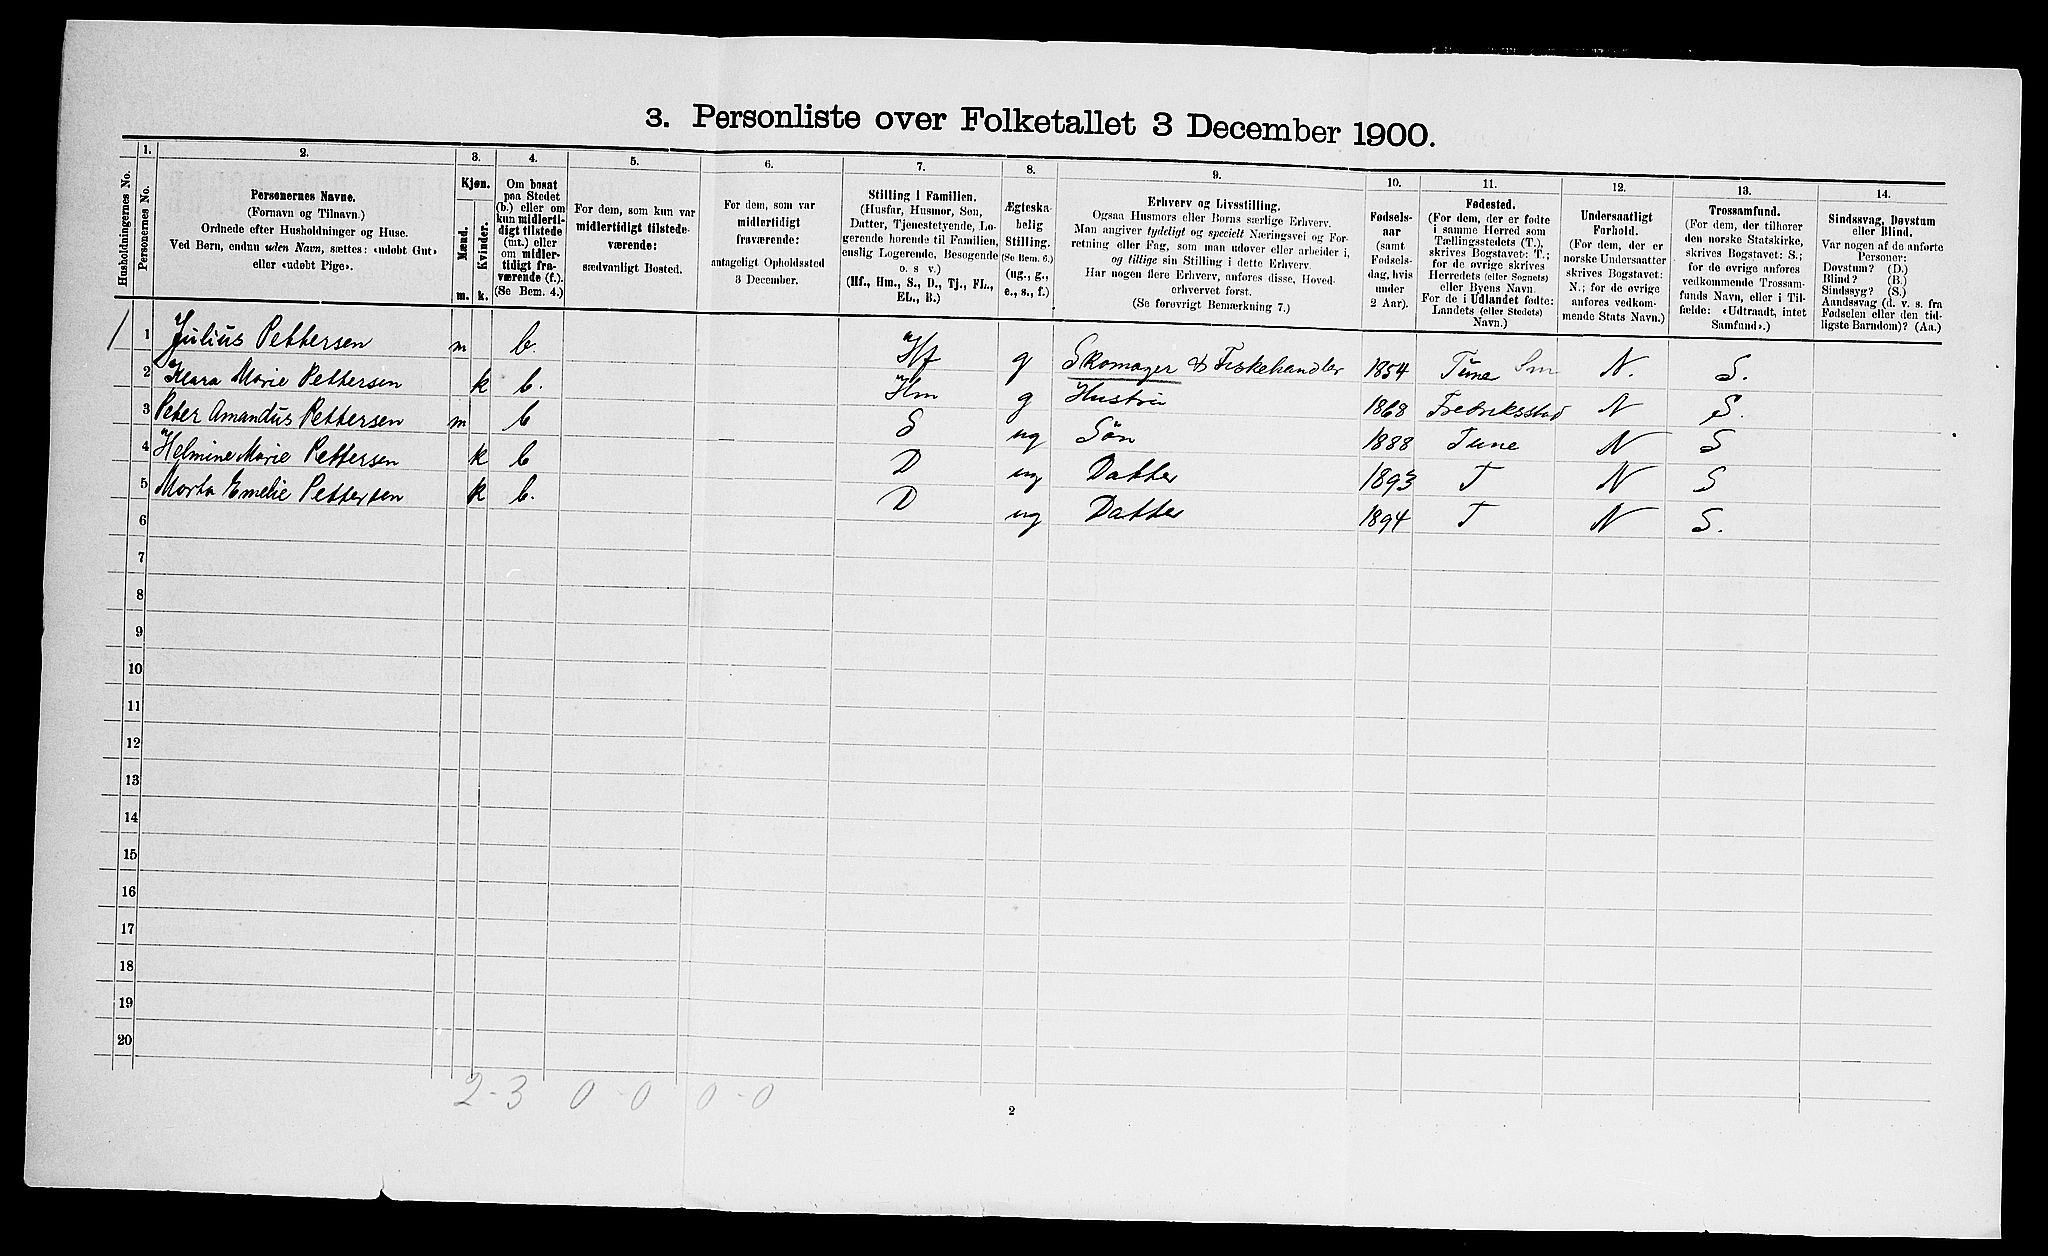 3. Personliste over Folketallet 3 December 1900.
1. 2. 3. 4. 5. 6. 7. 8. 9. 10. 11. 12. 13. 14.
Husholdningernes No.
Personernes No.
Personernes Navne.
(Fornavn og Tilnavn.)
Ordnede efter Husholdninger og Huse.
Ved Børn, endnu uden Navn, sættes: «udøbt Gut»
eller «udøbt Pige».
Kjøn.
Mænd.
m.
Kvinder.
k.
Om bosat
paa Stedet
(b.) eller om
kun midlerti-
digt tilstede
(mt.) eller
om midler-
tidigt fra-
værende (f.).
(Se Bem. 4.)
For dem, som kun var
midlertidigt tilstede-
værende:
sædvanligt Bosted.
For dem, som var
midlertidigt
fraværende:
antageligt Opholdssted
3 December.
Stilling i Familien.
(Husfar, Husmor, Søn,
Datter, Tjenestetyende, Lo-
gerende hørende til Familien,
enslig Logerende, Besøgende
o. s v.)
(Hf., Hm., S., D., Tj., FL.,
EL., B.)
Ægteska-
belig
Stilling.
(Se Bem. 6.)
(ug., g.,
e., s., f.)
Erhverv og Livsstilling.
Ogsaa Husmors eller Børns særlige Erhverv.
Man angiver tydeligt og specielt Næringsvei og For-
retning eller Fag, som man udøver eller arbeider i,
og tillige sin Stilling i dette Erhverv.
Har nogen flere Erhverv, anføres disse, Hoved-
erhvervet først.
(Se forøvrigt Bemærkning 7.)
Fødsels-
aar
(samt
Fødsels-
dag, hvis
under
2 Aar).
Fødested.
(For dem, der er fødte
i samme Herred som
Tællingsstedets (T.),
skrives Bogstavet: T.;
for de øvrige skrives
Herredets (eller Sognets)
eller Byens Navn.
For de i Udlandet fødte:
Landets (eller Stedets)
Navn.)
Undersaatligt
Forhold.
(For dem, der er
norske Undersaatter
skrives Bogstavet:
N.; for de øvrige
anføres vedkom-
mende Stats Navn.)
Trossamfund.
(For dem, der tilhører
den norske Statskirke,
skrives Bogstavet: S.;
for de øvrige anføres
vedkommende Trossam-
funds Navn, eller i Til-
fælde: «Udtraadt, intet
Samfund».)
Sindssvag, Døvstum
eller Blind.
Var nogen af de anførte
Personer:
Døvstum? (D.)
Blind? (B.)
Sindssyg? (S.)
Aandssvag (d. v. s. fra
Fødselen eller den tid-
ligste Barndom)? (Aa.)
1 1 Julius Pettersen m b. Hf g Skomager & Fiskehandler 1854 Tune Sm N. S.
2 Klara Marie Pettersen k b. Hm g Hustru 1868 Fredriksstad N S.
3 Peter Amandus Pettersen m b S ug Søn 1888 Tune N S
4 Helmine Marie Pettersen k b D ug Datter 1893 T N S
5 Marta Emelie Pettersen k b. D ug Datter 1894 T N S.
6
7
8
9
10
11
12
13
14
15
16
17
18
19
20
2-3 0-0 0-0
2